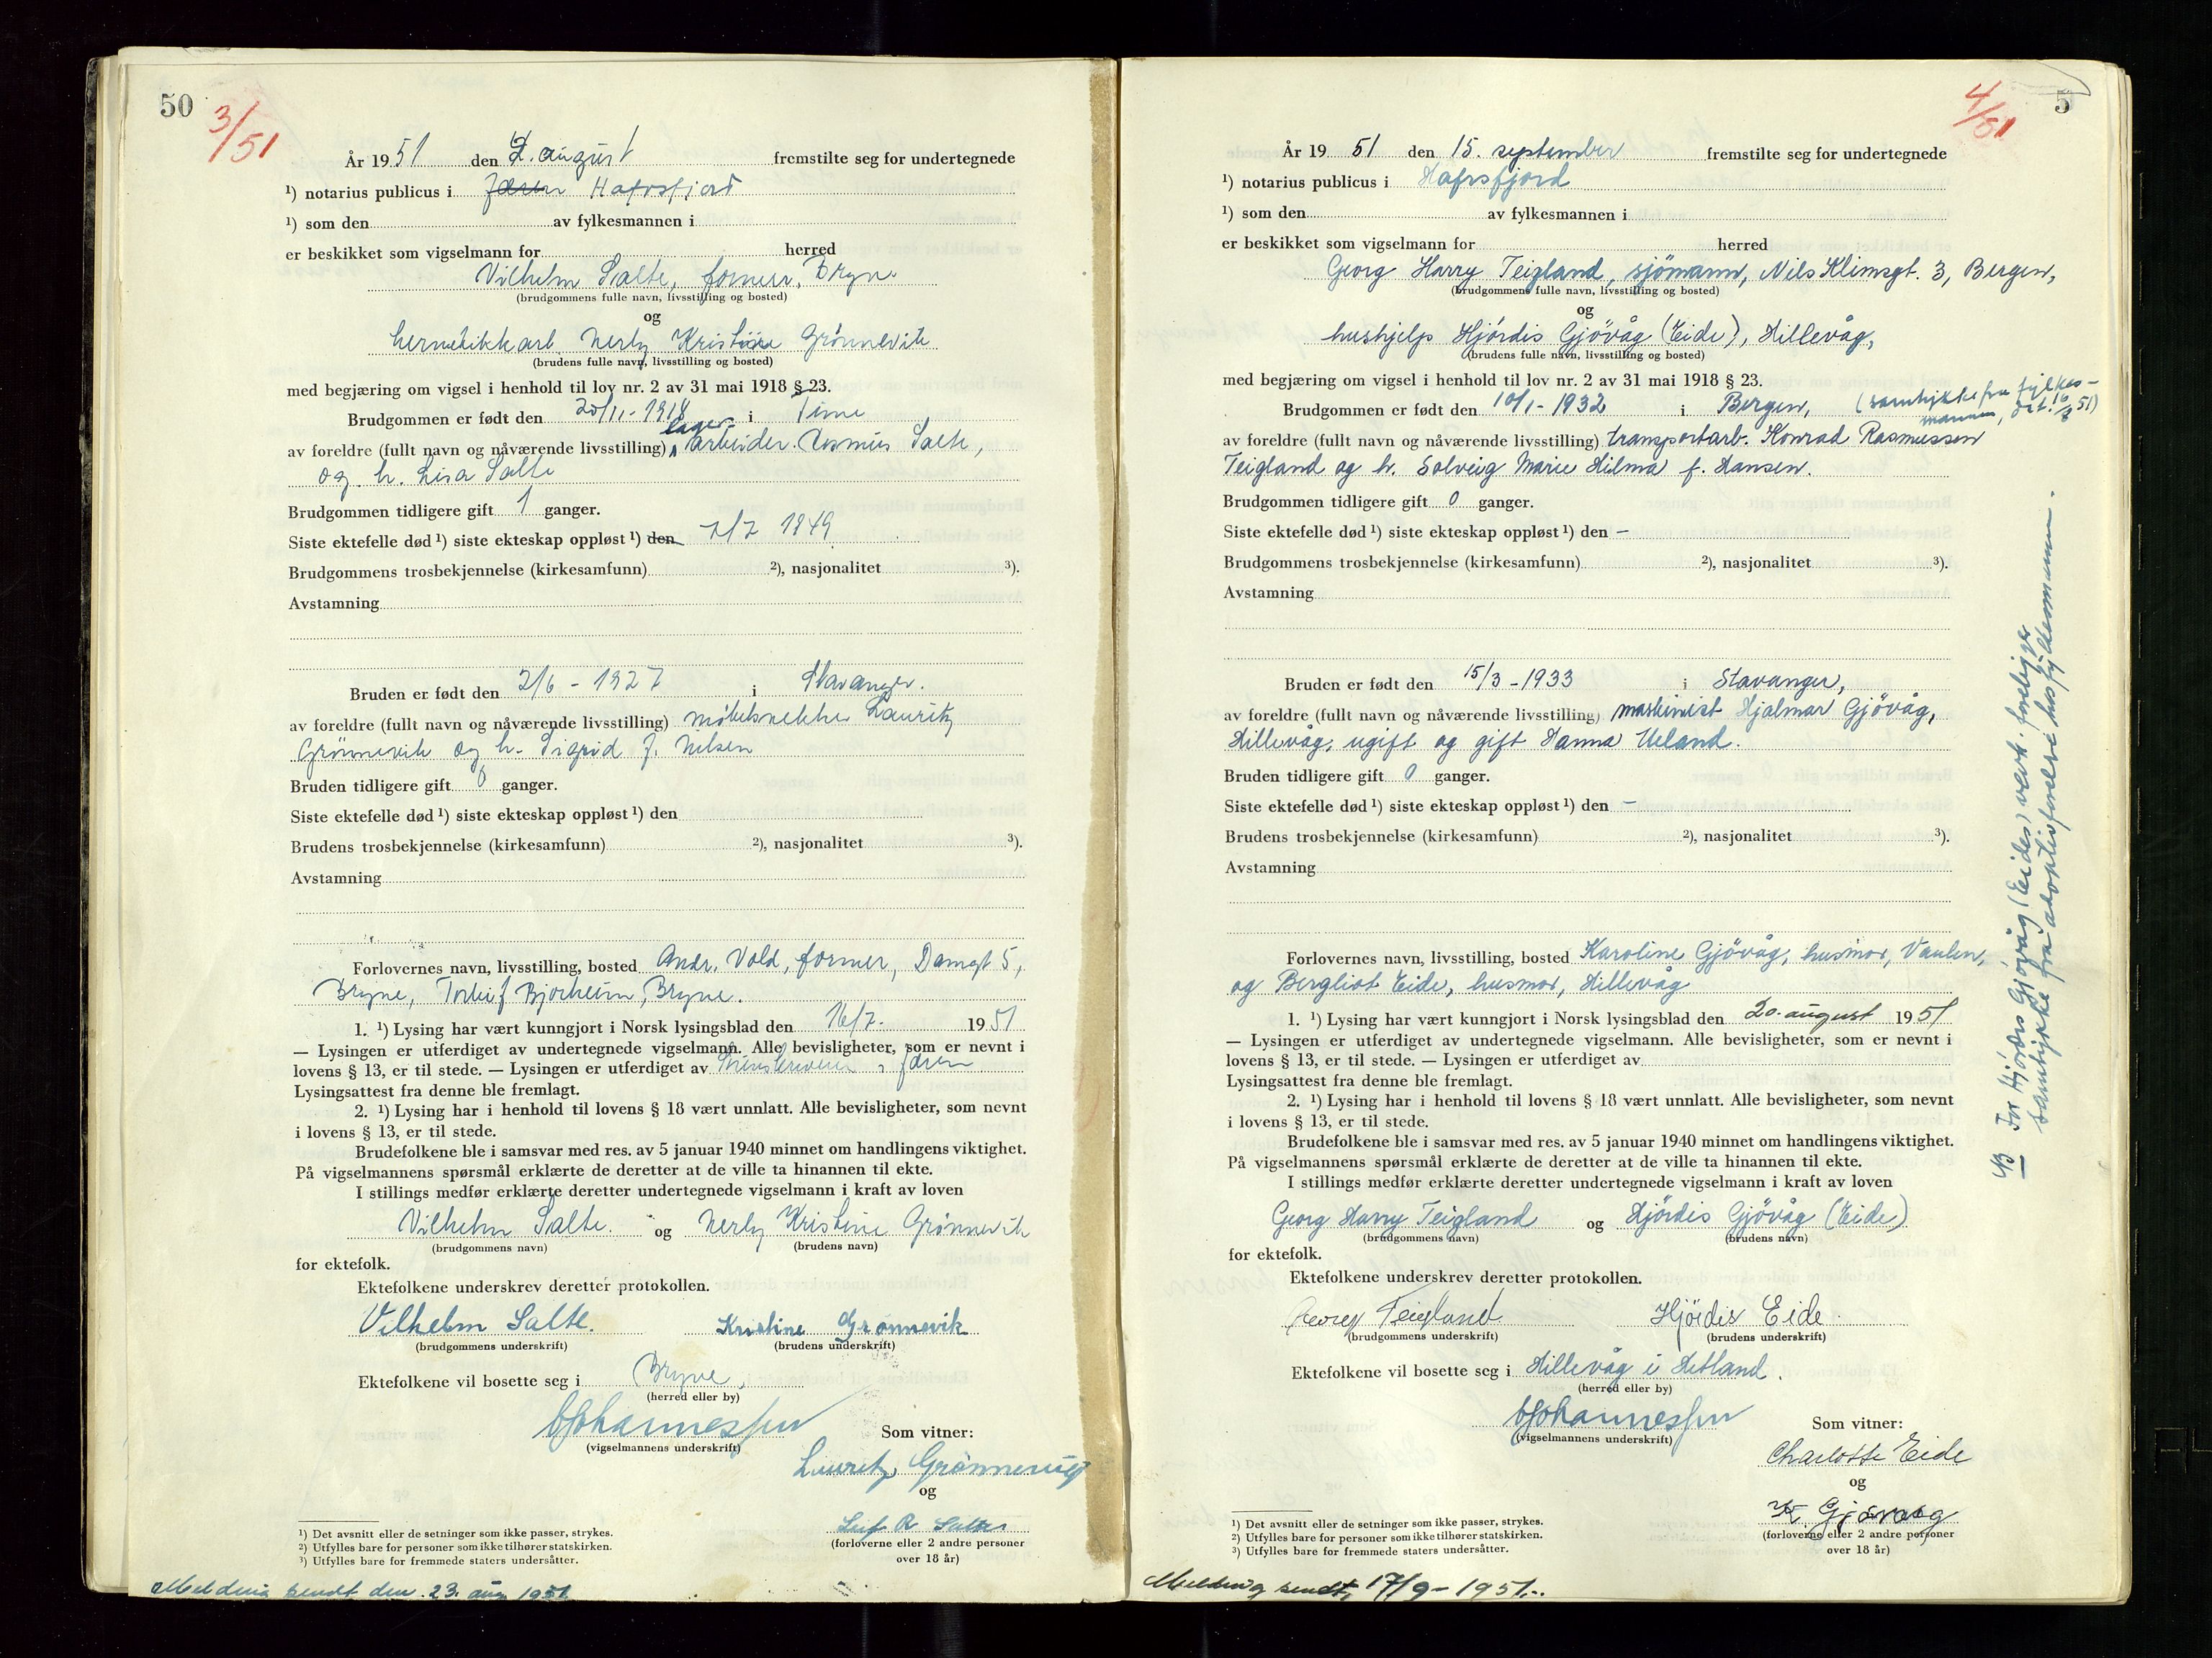 50
3/51
År 1951 den 2. august fremstilte seg for undertegnede
¹) notarius publicus i Jæren Hafrsfjord
¹) som den av fylkesmannen i
er beskikket som vigselmann for herred
Vilhelm Salte, former, Bryne
(brudgommens fulle navn, livsstilling og bosted)
og
hermetikkarb. Nerly Kristine Grönnevik
(brudens fulle navn, livsstilling og bosted)
med begjæring om vigsel i henhold til lov nr. 2 av 31 mai 1918 § 23.
Brudgommen er født den 20/11-1918 i Time
lager-
av foreldre (fullt navn og nåværende livsstilling) arbeider Rasmus Salte,
og h. Lisa Salte
Brudgommen tidligere gift 1 ganger.
Siste ektefelle død ¹) siste ekteskap oppløst ¹) den 2/7 1949
Brudgommens trosbekjennelse (kirkesamfunn) ²), nasjonalitet ³).
Avstamning
Bruden er født den 2/6 - 1927 i Stavanger.
av foreldre (fullt navn og nåværende livsstilling) møbelsnekker Lauritz
Grönnevik og h. Sigrid f. Nilsen
Bruden tidligere gift 0 ganger.
Siste ektefelle død ¹) siste ekteskap oppløst ¹) den
Brudens trosbekjennelse (kirkesamfunn) ²), nasjonalitet ³).
Avstamning
Forlovernes navn, livsstilling, bosted Andr. Vold, former, Damgt 5,
Bryne, Torleif Bjorheim, Bryne.
1. ¹) Lysing har vært kunngjort i Norsk lysingsblad den 16/7. 1951
— Lysingen er utferdiget av undertegnede vigselmann. Alle bevisligheter, som er nevnt i
lovens § 13, er til stede. — Lysingen er utferdiget av i Jæren
Lysingsattest fra denne ble fremlagt.
2. ¹) Lysing har i henhold til lovens § 18 vært unnlatt. Alle bevisligheter, som nevnt
i lovens § 13, er til stede.
Brudefolkene ble i samsvar med res. av 5 januar 1940 minnet om handlingens viktighet.
På vigselmannens spørsmål erklærte de deretter at de ville ta hinannen til ekte.
I stillings medfør erklærte deretter undertegnede vigselmann i kraft av loven
Vilhelm Salte. og Nerly Kristine Grönnevik
(brudgommens navn) (brudens navn)
for ektefolk.
Ektefolkene underskrev deretter protokollen.
Vilhelm Salte. Kristine Grønnevik
(brudgommens underskrift) (brudens underskrift)
Ektefolkene vil bosette seg i Bryne,
(herred eller by)
Johannessen
(vigselmannens underskrift)
Som vitner:
Lauritz Grønnevig
og
Leif R Salte
(forloverne eller 2 andre personer
over 18 år)
¹) Det avsnitt eller de setninger som ikke passer, strykes.
²) Utfylles bare for personer som ikke tilhører statskirken.
³) Utfylles bare for fremmede staters undersåtter.
Melding sendt den 23. aug 1951
5
4/51
År 1951 den 15. september fremstilte seg for undertegnede
¹) notarius publicus i Hafrsfjord
¹) som den av fylkesmannen i
er beskikket som vigselmann for herred
Georg Harry Teigland, sjömann, Nils Klimsgt. 3, Bergen,
(brudgommens fulle navn, livsstilling og bosted)
og
hushjelp Hjördis Gjövåg (Eide), Hillevåg,
(brudens fulle navn, livsstilling og bosted)
med begjæring om vigsel i henhold til lov nr. 2 av 31 mai 1918 § 23.
Brudgommen er født den 10/1-1932 i Bergen, (samtykke fra fylkes-
mannen, dat. 16/8 51)
av foreldre (fullt navn og nåværende livsstilling) transportarb. Konrad Rasmussen
Teigland og h. Solveig Marie Hilma f. Hansen.
Brudgommen tidligere gift 0 ganger.
Siste ektefelle død ¹) siste ekteskap oppløst ¹) den -
Brudgommens trosbekjennelse (kirkesamfunn) ²), nasjonalitet ³).
Avstamning
Bruden er født den 15/3-1933 i Stavanger,
av foreldre (fullt navn og nåværende livsstilling) maskinist Hjalmar Gjövåg,
Hillevåg, ugift og gift Hanna Ueland.
Bruden tidligere gift 0 ganger.
Siste ektefelle død ¹) siste ekteskap oppløst ¹) den -
Brudens trosbekjennelse (kirkesamfunn) ²), nasjonalitet ³).
Avstamning
Forlovernes navn, livsstilling, bosted Karoline Gjövåg, husmor, Vaulen,
og Bergliot Eide, husmor, Hillevåg
1. ¹) Lysing har vært kunngjort i Norsk lysingsblad den 20. august 1951
— Lysingen er utferdiget av undertegnede vigselmann. Alle bevisligheter, som er nevnt i
lovens § 13, er til stede. — Lysingen er utferdiget av
Lysingsattest fra denne ble fremlagt.
2. ¹) Lysing har i henhold til lovens § 18 vært unnlatt. Alle bevisligheter, som nevnt
i lovens § 13, er til stede.
Brudefolkene ble i samsvar med res. av 5 januar 1940 minnet om handlingens viktighet.
På vigselmannens spørsmål erklærte de deretter at de ville ta hinannen til ekte.
I stillings medfør erklærte deretter undertegnede vigselmann i kraft av loven
Georg Harry Teigland og Hjördis Gjövåg (Eide)
(brudgommens navn) (brudens navn)
for ektefolk.
Ektefolkene underskrev deretter protokollen.
Georg Teigland Hjördis Eide.
(brudgommens underskrift) (brudens underskrift)
Ektefolkene vil bosette seg i Hillevåg i Hetland.
(herred eller by)
Johannessen
(vigselmannens underskrift)
Som vitner:
Charlotte Eide
og
K. Gjövaag
(forloverne eller 2 andre personer
over 18 år)
¹) Det avsnitt eller de setninger som ikke passer, strykes.
²) Utfylles bare for personer som ikke tilhører statskirken.
³) Utfylles bare for fremmede staters undersåtter.
Melding sendt, 17/9-1951.-.
NB For Hjördis Gjövåg (Eides) vedk. foreligger
samtykke fra adoptivforeldre hos fylkesmannen.